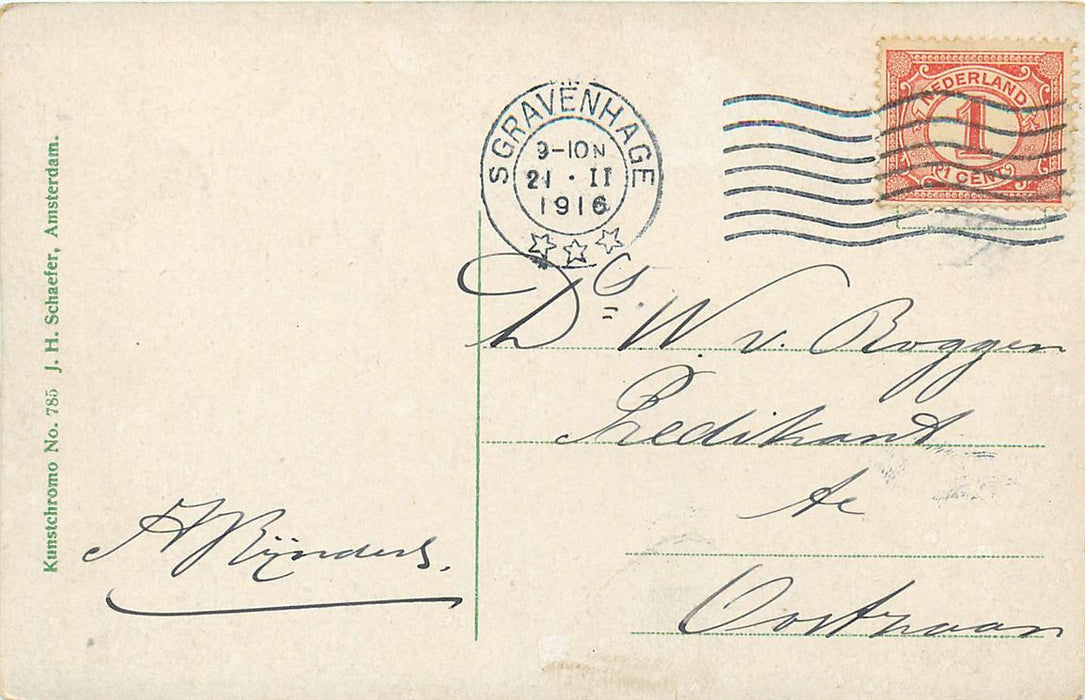 'SGRAVENHAGE
9-10N
21 · II
1916
NEDERLAND
1
1 CENT
Kunstchromo No. 785 J. H. Schaefer, Amsterdam.
Ds W. v. Roggen
Predikant
te
ARijnders.